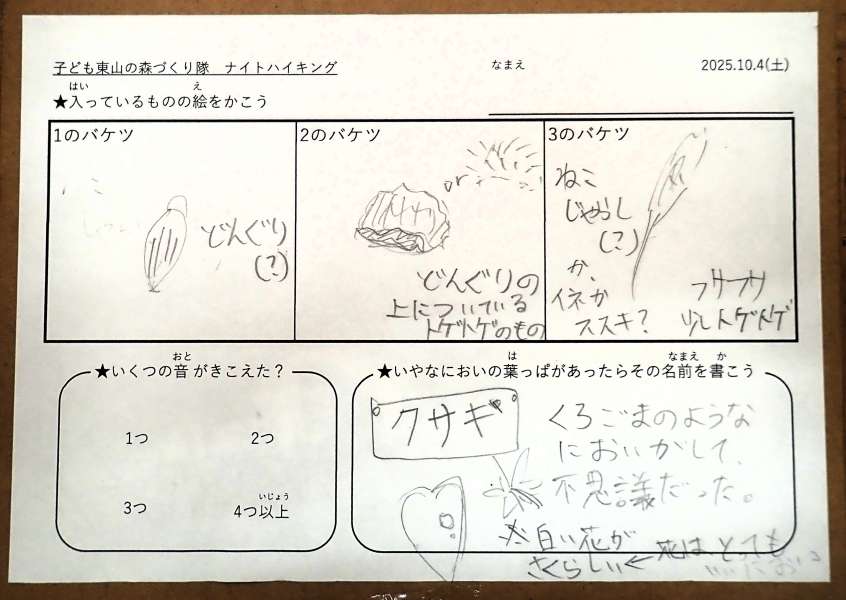 子ども東山の森づくり隊　ナイトハイキング
なまえ
2025.10.4(土)
はい　え
★入っているものの絵をかこう
1のバケツ
どんぐり
(?)
2のバケツ
or
どんぐりの
上についている
トゲトゲのもの
3のバケツ
ねこ
じゃらし
(?)
か、
イネか
ススキ?
フサフサ
少しトゲトゲ
おと
★いくつの音がきこえた？
1つ
2つ
3つ
いじょう
4つ以上
は　なまえ　か
★いやなにおいの葉っぱがあったらその名前を書こう
クサギ
くろごまのような
においがして、
不思議だった。
※白い花が
さくらしい←花は、とっても
いいにおい